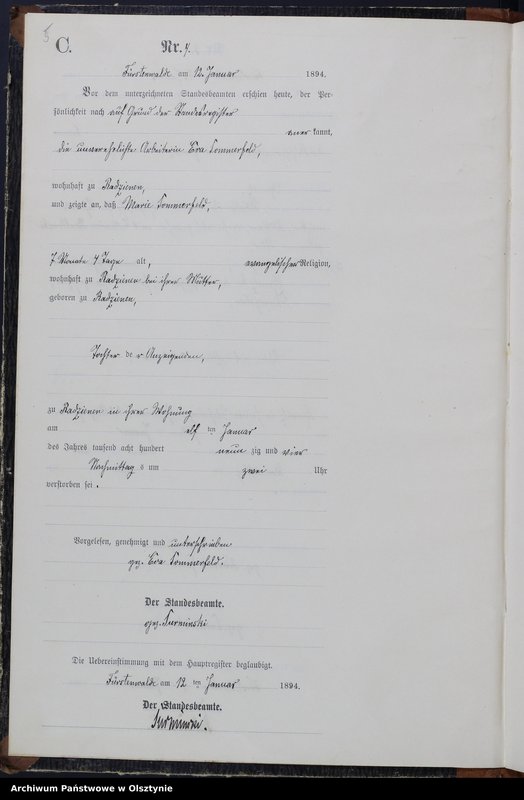 5
C.
Nr. 4.
Fürstenwalde am 12. Januar 1894.
Vor dem unterzeichneten Standesbeamten erschien heute, der Per-
sönlichkeit nach auf Grund der Standesregister
aner kannt,
die unverehelichte Arbeiterin Eva Sommerfeld,
wohnhaft zu Radzienen,
und zeigte an, daß Marie Sommerfeld,
7 Monate 4 Tage alt, evangelischer Religion,
wohnhaft zu Radzienen bei ihrer Mutter,
geboren zu Radzienen,
Tochter de r Anzeigenden,
zu Radzienen in ihrer Wohnung
am elf ten Januar
des Jahres tausend acht hundert neun zig und vier
Nachmittag s um zwei Uhr
verstorben sei.
Vorgelesen, genehmigt und unterschrieben
gez. Eva Sommerfeld.
Der Standesbeamte.
gez. Surminski
Die Uebereinstimmung mit dem Hauptregister beglaubigt.
Fürstenwalde am 12 ten Januar 1894.
Der Standesbeamte.
Surminski.
Archiwum Państwowe w Olsztynie